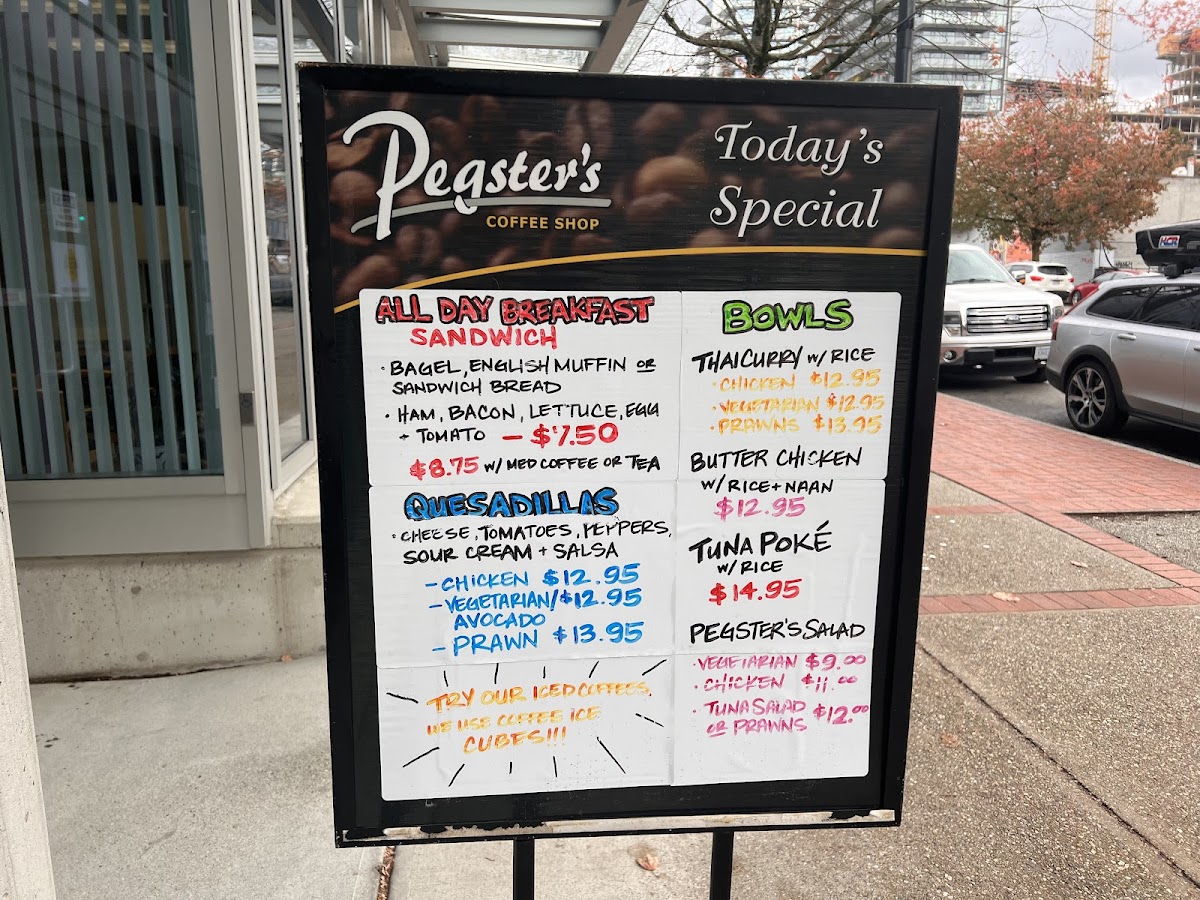 Pegster's
COFFEE SHOP
Today's
Special
ALL DAY BREAKFAST
SANDWICH
· BAGEL, ENGLISH MUFFIN OR
SANDWICH BREAD
· HAM, BACON, LETTUCE, EGG
+ TOMATO - $7.50
$8.75 W/ MED COFFEE OR TEA
QUESADILLAS
· CHEESE, TOMATOES, PEPPERS,
SOUR CREAM + SALSA
- CHICKEN $12.95
- VEGETARIAN/ $12.95
AVOCADO
- PRAWN $13.95
TRY OUR ICED COFFEES,
WE USE COFFEE ICE
CUBES!!!
BOWLS
THAI CURRY W/ RICE
· CHICKEN $12.95
· VEGETARIAN $12.95
· PRAWNS $13.95
BUTTER CHICKEN
W/ RICE + NAAN
$12.95
TUNA POKÉ
W/ RICE
$14.95
PEGSTER'S SALAD
· VEGETARIAN $9.00
· CHICKEN $11.00
· TUNA SALAD
OR PRAWNS $12.00